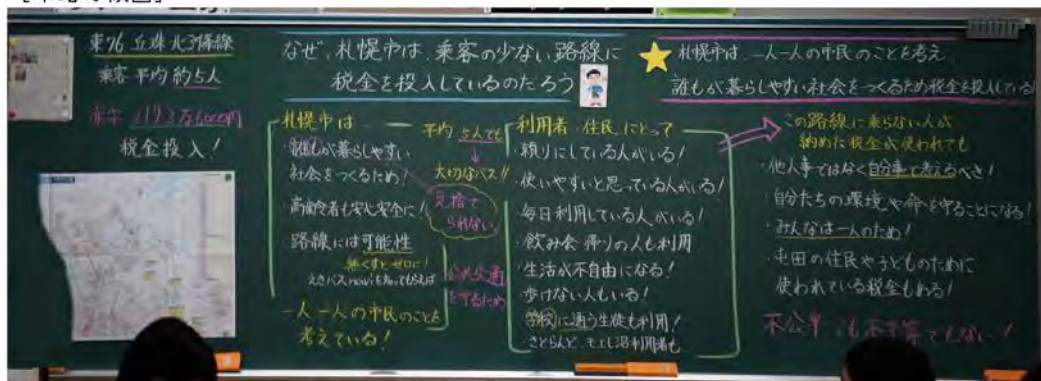 東76 丘珠北34条線
乗客 平均 約5人
赤字 2193万6000円
税金投入！
なぜ、札幌市は、乗客の少ない路線に
税金を投入しているのだろう
札幌市は、一人一人の市民のことを考え
誰もが暮らしやすい社会をつくるため税金を投入している
札幌市は
・誰もが暮らしやすい
社会をつくるため！
・高齢者も安心安全に！
・路線には可能性
無くすとゼロに！
えきバスnaviを知ってもらえば
一人一人の市民のことを
考えている！
平均 5人でも
↓
大切なバス!!
見捨て
られない
公共交通
を守るため
利用者・住民にとって
・頼りにしている人がいる！
・使いやすいと思っている人がいる！
・毎日利用している人がいる！
・飲み会帰りの人も利用
・生活が不自由になる！
・歩けない人もいる！
・学校に通う生徒も利用！
・さとらんど、モエレ沼利用者も
この路線に乗らない人が
納めた税金が使われても
・他人事ではなく自分事で考えるべき！
・自分たちの環境や命を守ることになる！
・みんなは一人のため！
・屯田の住民や子どものために
使われている税金もある！
不公平でも不平等でもない！